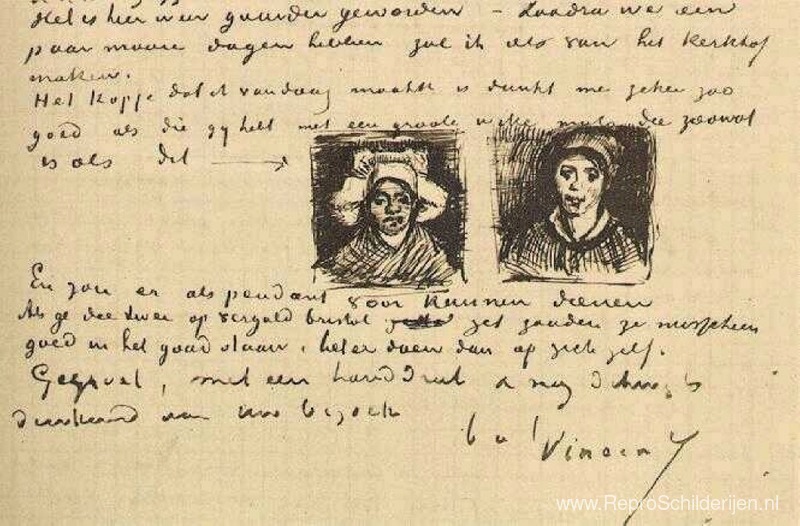 Het is hier weer guurder geworden – Zoodra we een
paar mooie dagen hebben zal ik iets van het kerkhof
maken.
Het kopje dat ik vandaag maakte is dunkt me zeker zoo
goed als die gij hebt met een groote witte muts die zoowat
is als dit
En zou er als pendant voor kunnen dienen
Als ge die twee op verguld bristol zet zouden ze misschien
goed in het goud staan, beter doen dan op zich zelf.
Gegroet, met een handdruk &
dankend van uw bezoek
b a t
Vincent
www.ReproSchilderijen.nl